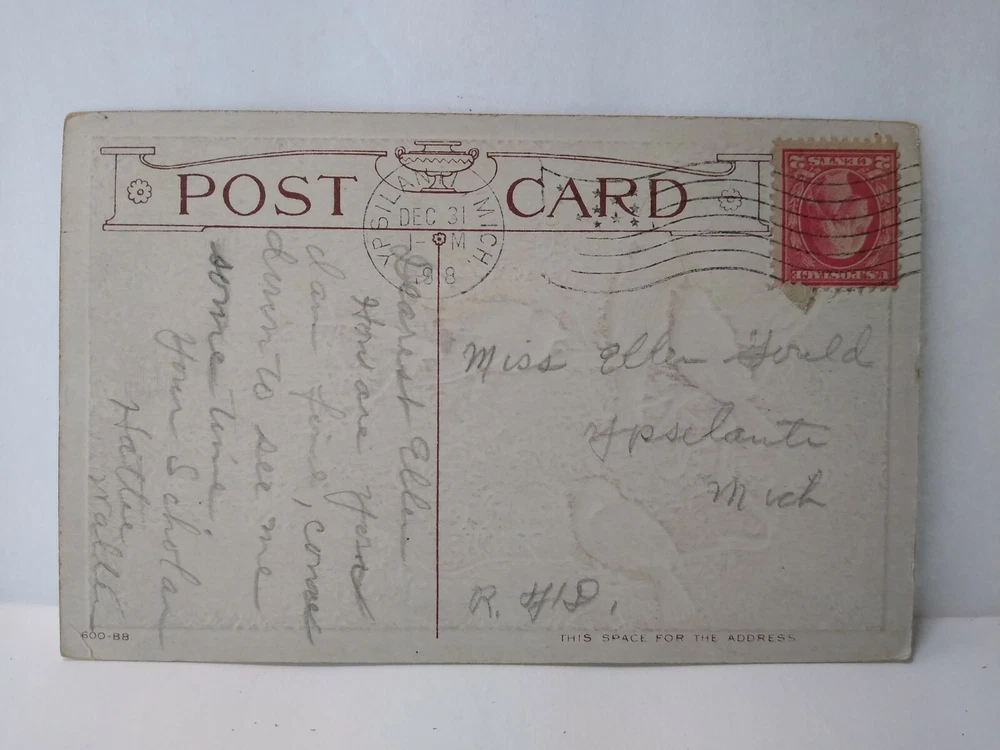 POST CARD
YPSILANTI MICH.
DEC 31
1- M
1918
2 CENTS 2
U.S. POSTAGE
Dearest Ellen
How are you
I am fine, come
down to see me
some time
Your Scholar
Hattie
Miss Ellen Gould
Ypselanti
Mich
R. #1D,
600-BB
THIS SPACE FOR THE ADDRESS